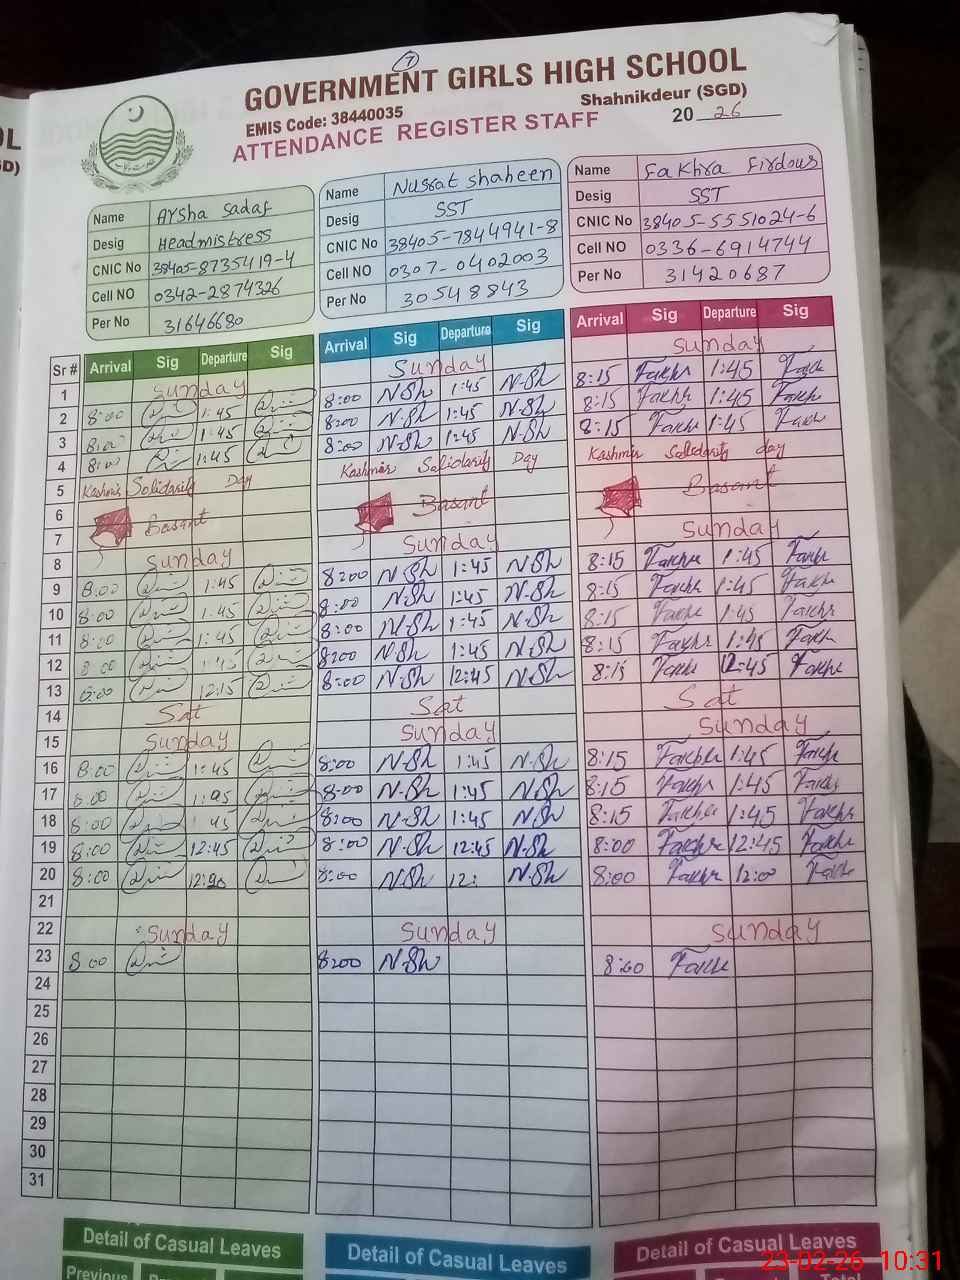 7
GOVERNMENT GIRLS HIGH SCHOOL
EMIS Code: 38440035
Shahnikdeur (SGD)
ATTENDANCE REGISTER STAFF
20 26
Name Aysha Sadaf
Desig Headmistress
CNIC No 38405-8735419-4
Cell NO 0342-2874326
Per No 31646680
Name Nusrat Shaheen
Desig SST
CNIC No 38405-7844941-8
Cell NO 0307-0402003
Per No 30548843
Name Fakhra Firdous
Desig SST
CNIC No 38405-5551024-6
Cell NO 0336-6914744
Per No 31420687
Sr # Arrival Sig Departure Sig Arrival Sig Departure Sig Arrival Sig Departure Sig
1 Sunday Sunday Sunday
2 8:00 1:45 8:00 N-Sh 1:45 N-Sh 8:15 Fakhr 1:45
3 1:45 8:00 N-Sh 1:45 N-Sh 8:15 Fakhr 1:45 Fakhr
4 1:45 8:00 N-Sh 1:45 N-Sh 8:15 Fakhr 1:45 Fakhr
5 Kashmir Solidarity Day Kashmir Solidarity Day Kashmir Solidarity day
6 Basant Basant Basant
7
8 Sunday Sunday Sunday
9 8:00 1:45 8:00 N-Sh 1:45 N-Sh 8:15 Fakhr 1:45 Fakhr
10 8:00 1:45 8:00 N-Sh 1:45 N-Sh 8:15 Fakhr 1:45 Fakhr
11 8:00 1:45 8:00 N-Sh 1:45 N-Sh 8:15 Fakhr 1:45 Fakhr
12 8:00 1:45 8:00 N-Sh 1:45 N-Sh 8:15 Fakhr 1:45 Fakhr
13 8:00 12:15 8:00 N-Sh 12:45 N-Sh 8:15 Fakhr 12:45 Fakhr
14 Sat Sat Sat
15 Sunday Sunday Sunday
16 8:00 1:45 8:00 N-Sh 1:45 N-Sh 8:15 Fakhr 1:45 Fakhr
17 8:00 1:45 8:00 N-Sh 1:45 N-Sh 8:15 Fakhr 1:45 Fakhr
18 8:00 1:45 8:00 N-Sh 1:45 N-Sh 8:15 Fakhr 1:45 Fakhr
19 8:00 12:45 8:00 N-Sh 12:45 N-Sh 8:00 Fakhr 12:45 Fakhr
20 8:00 8:00 N-Sh 12: N-Sh 8:00 Fakhr 12:00 Fakhr
21
22 Sunday Sunday Sunday
23 8:00 8:00 N-Sh 8:00 Fakhr
24
25
26
27
28
29
30
31
Detail of Casual Leaves Detail of Casual Leaves Detail of Casual Leaves
Previous
23-02-26 10:31